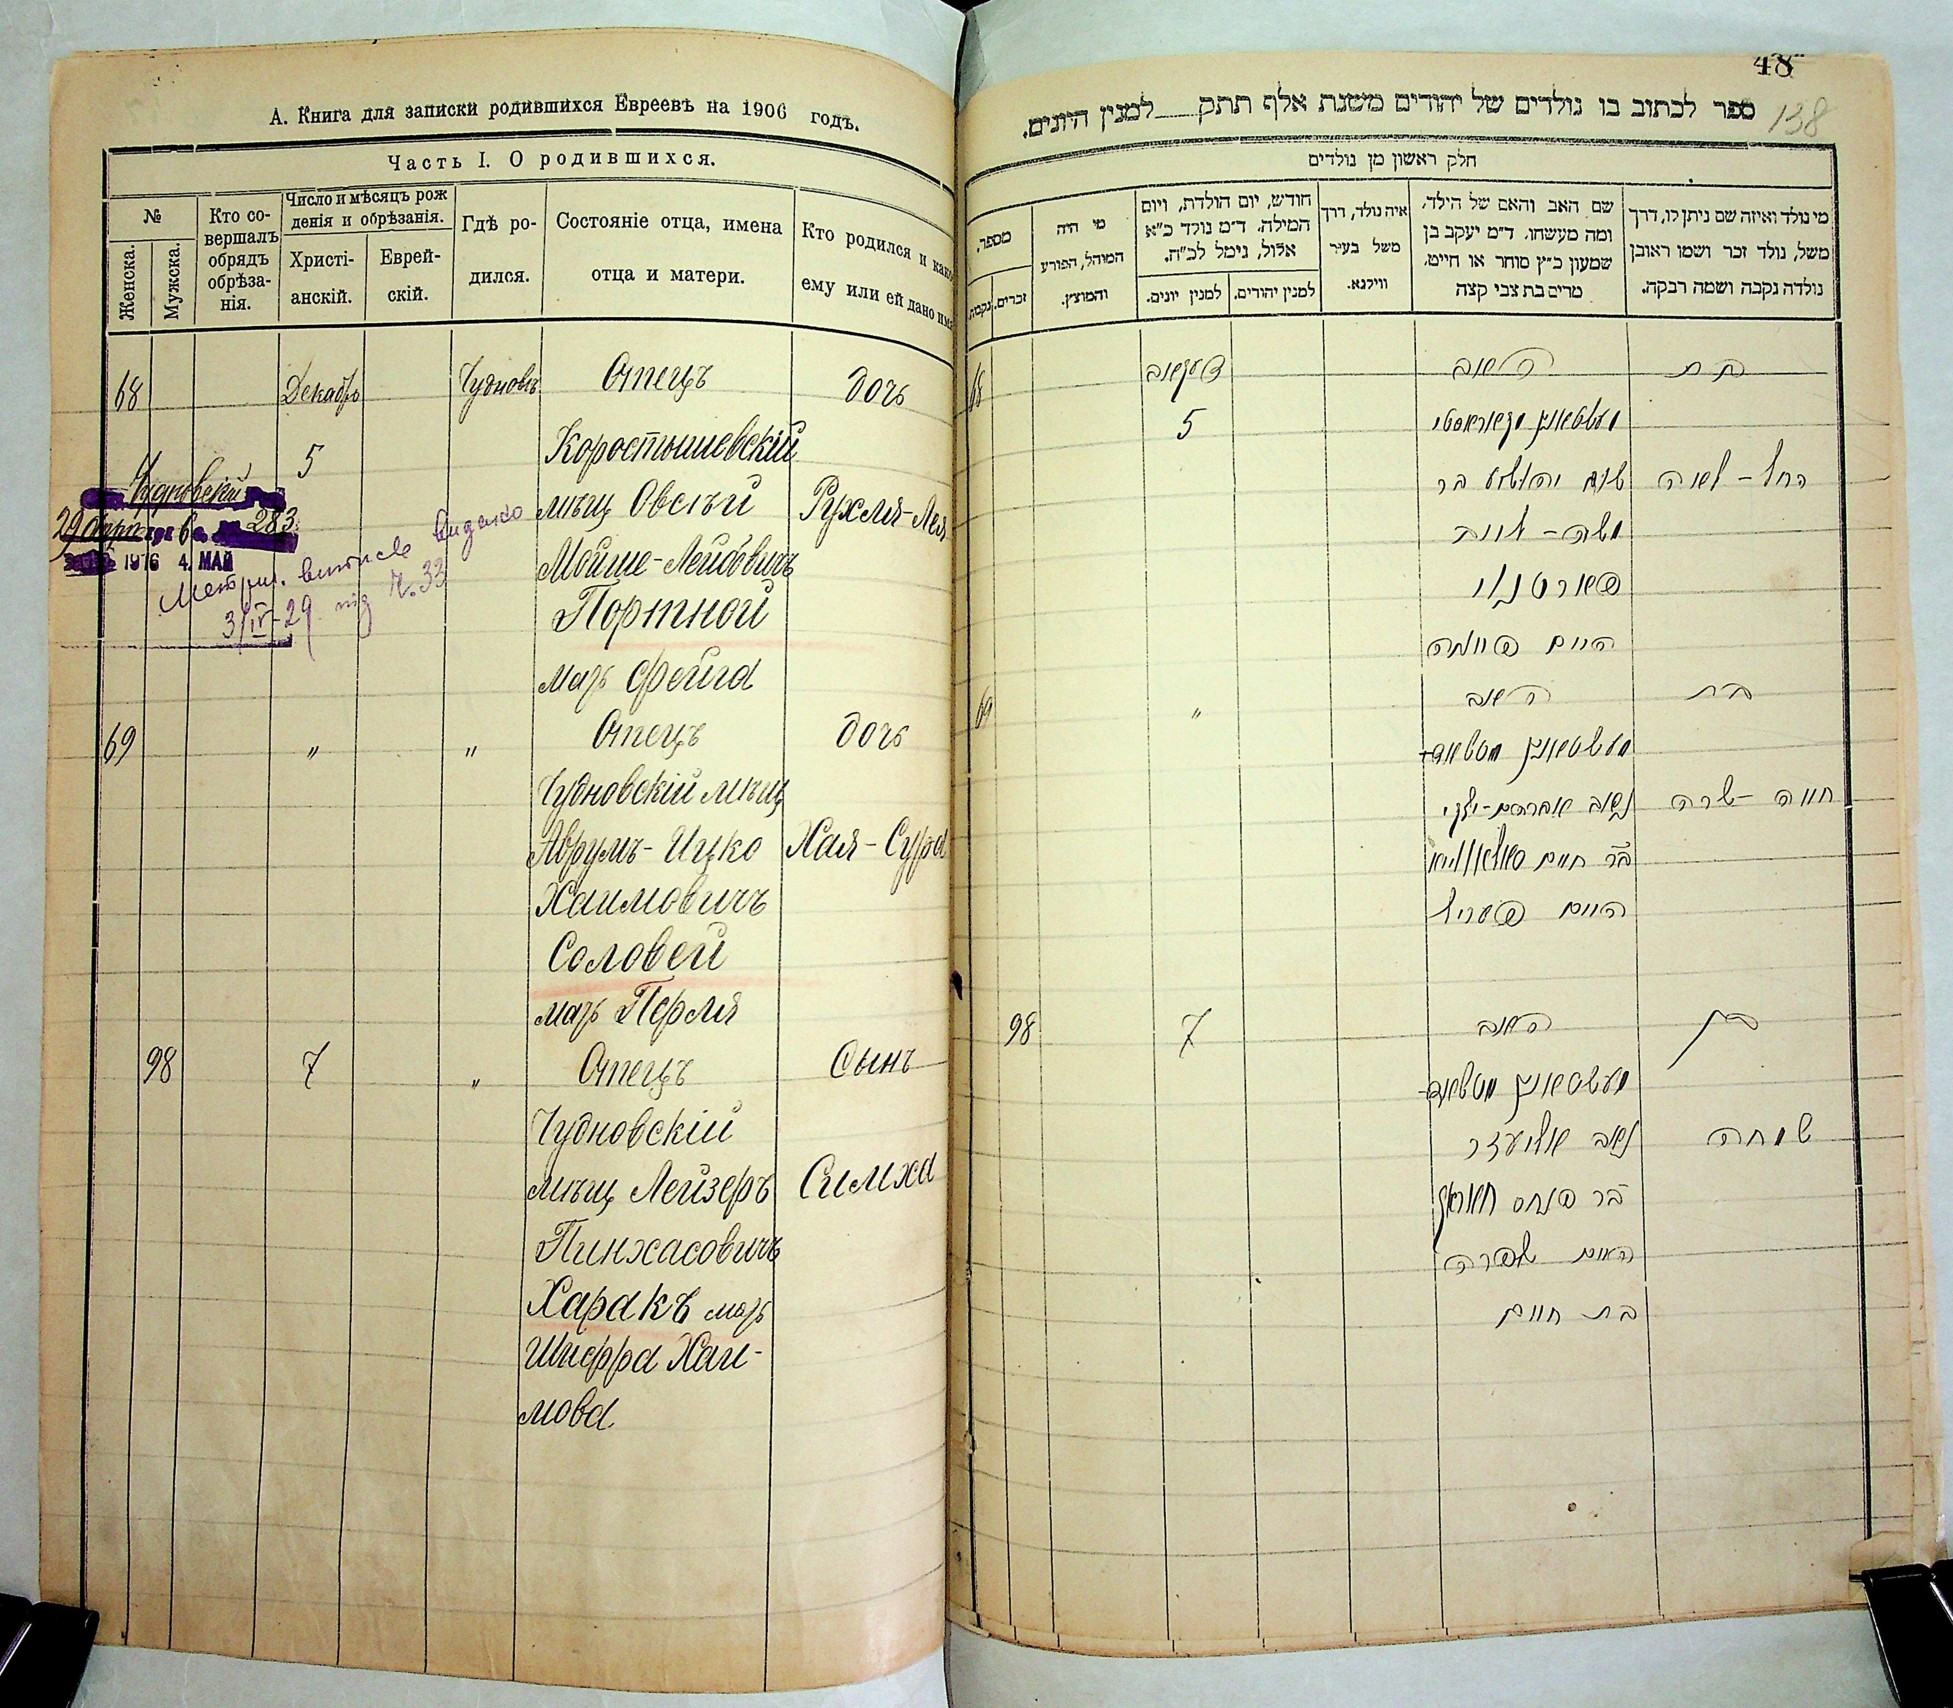 А. Книга для записки родившихся Евреевъ на 1906 годъ.
Часть I. О родившихся.
№
Женска.
Мужска.
Кто со-
вершалъ
обрядъ
обрѣза-
нія.
Число и мѣсяцъ рож
денія и обрѣзанія.
Христі-
анскій.
Еврей-
скій.
Гдѣ ро-
дился.
Состояніе отца, имена
отца и матери.
Кто родился и како
ему или ей дано имя
68 Декабрь Чудновъ Отецъ дочь
5 Коростышевскій
мѣщ Овсѣй Рухля-Лея
Мойше-Лейбовичъ
Портной
мать Фейга
Чудновскій
283
1916 4. МАЙ
Метрич. видано
3/IV-29 під №. 33
69 " " Отецъ дочь
Чудновскій мѣщ
Аврумъ-Ицко Хая-Сура
Хаимовичъ
Соловей
мать Перля
98 7 " Отецъ Сынъ
Чудновскій
мѣщ Лейзеръ Симха
Пинхасовичъ
Харакъ мать
Шифра Хаи-
мова
48
138
ספר לכתוב בו נולדים של יהודים משנת אלף תתק למנין היונים.
חלק ראשון מן נולדים
מי נולד ואיזה שם ניתן לו, דרך
משל, נולד זכר ושמו ראובן
נולדה נקבה ושמה רבקה.
שם האב והאם של הילד,
ומה מעשהו. ד״מ יעקב בן
שמעון כ״ץ סוחר או חייט,
מרים בת צבי קצה
איה נולד, דרך
משל בעיר
ווילנא.
חודש, יום הולדת, ויום
המילה. ד״מ נולד כ״א
אלול, נימל לכ״ח.
למנין יהודים.
למנין יונים.
מי היה
המוהל, הפורע
והמוצץ.
מספר.
זכרים.
נקבות.
68 דעקאב האב בת
5
רחל - לאה
משה - לייב
פארטנוי
האם פייגה
69 " האב בת
חיה - שרה
בר חיים
האם פערל
98 7 האב בן
שמחה
בר פנחס
האם שפרה
בת חיים